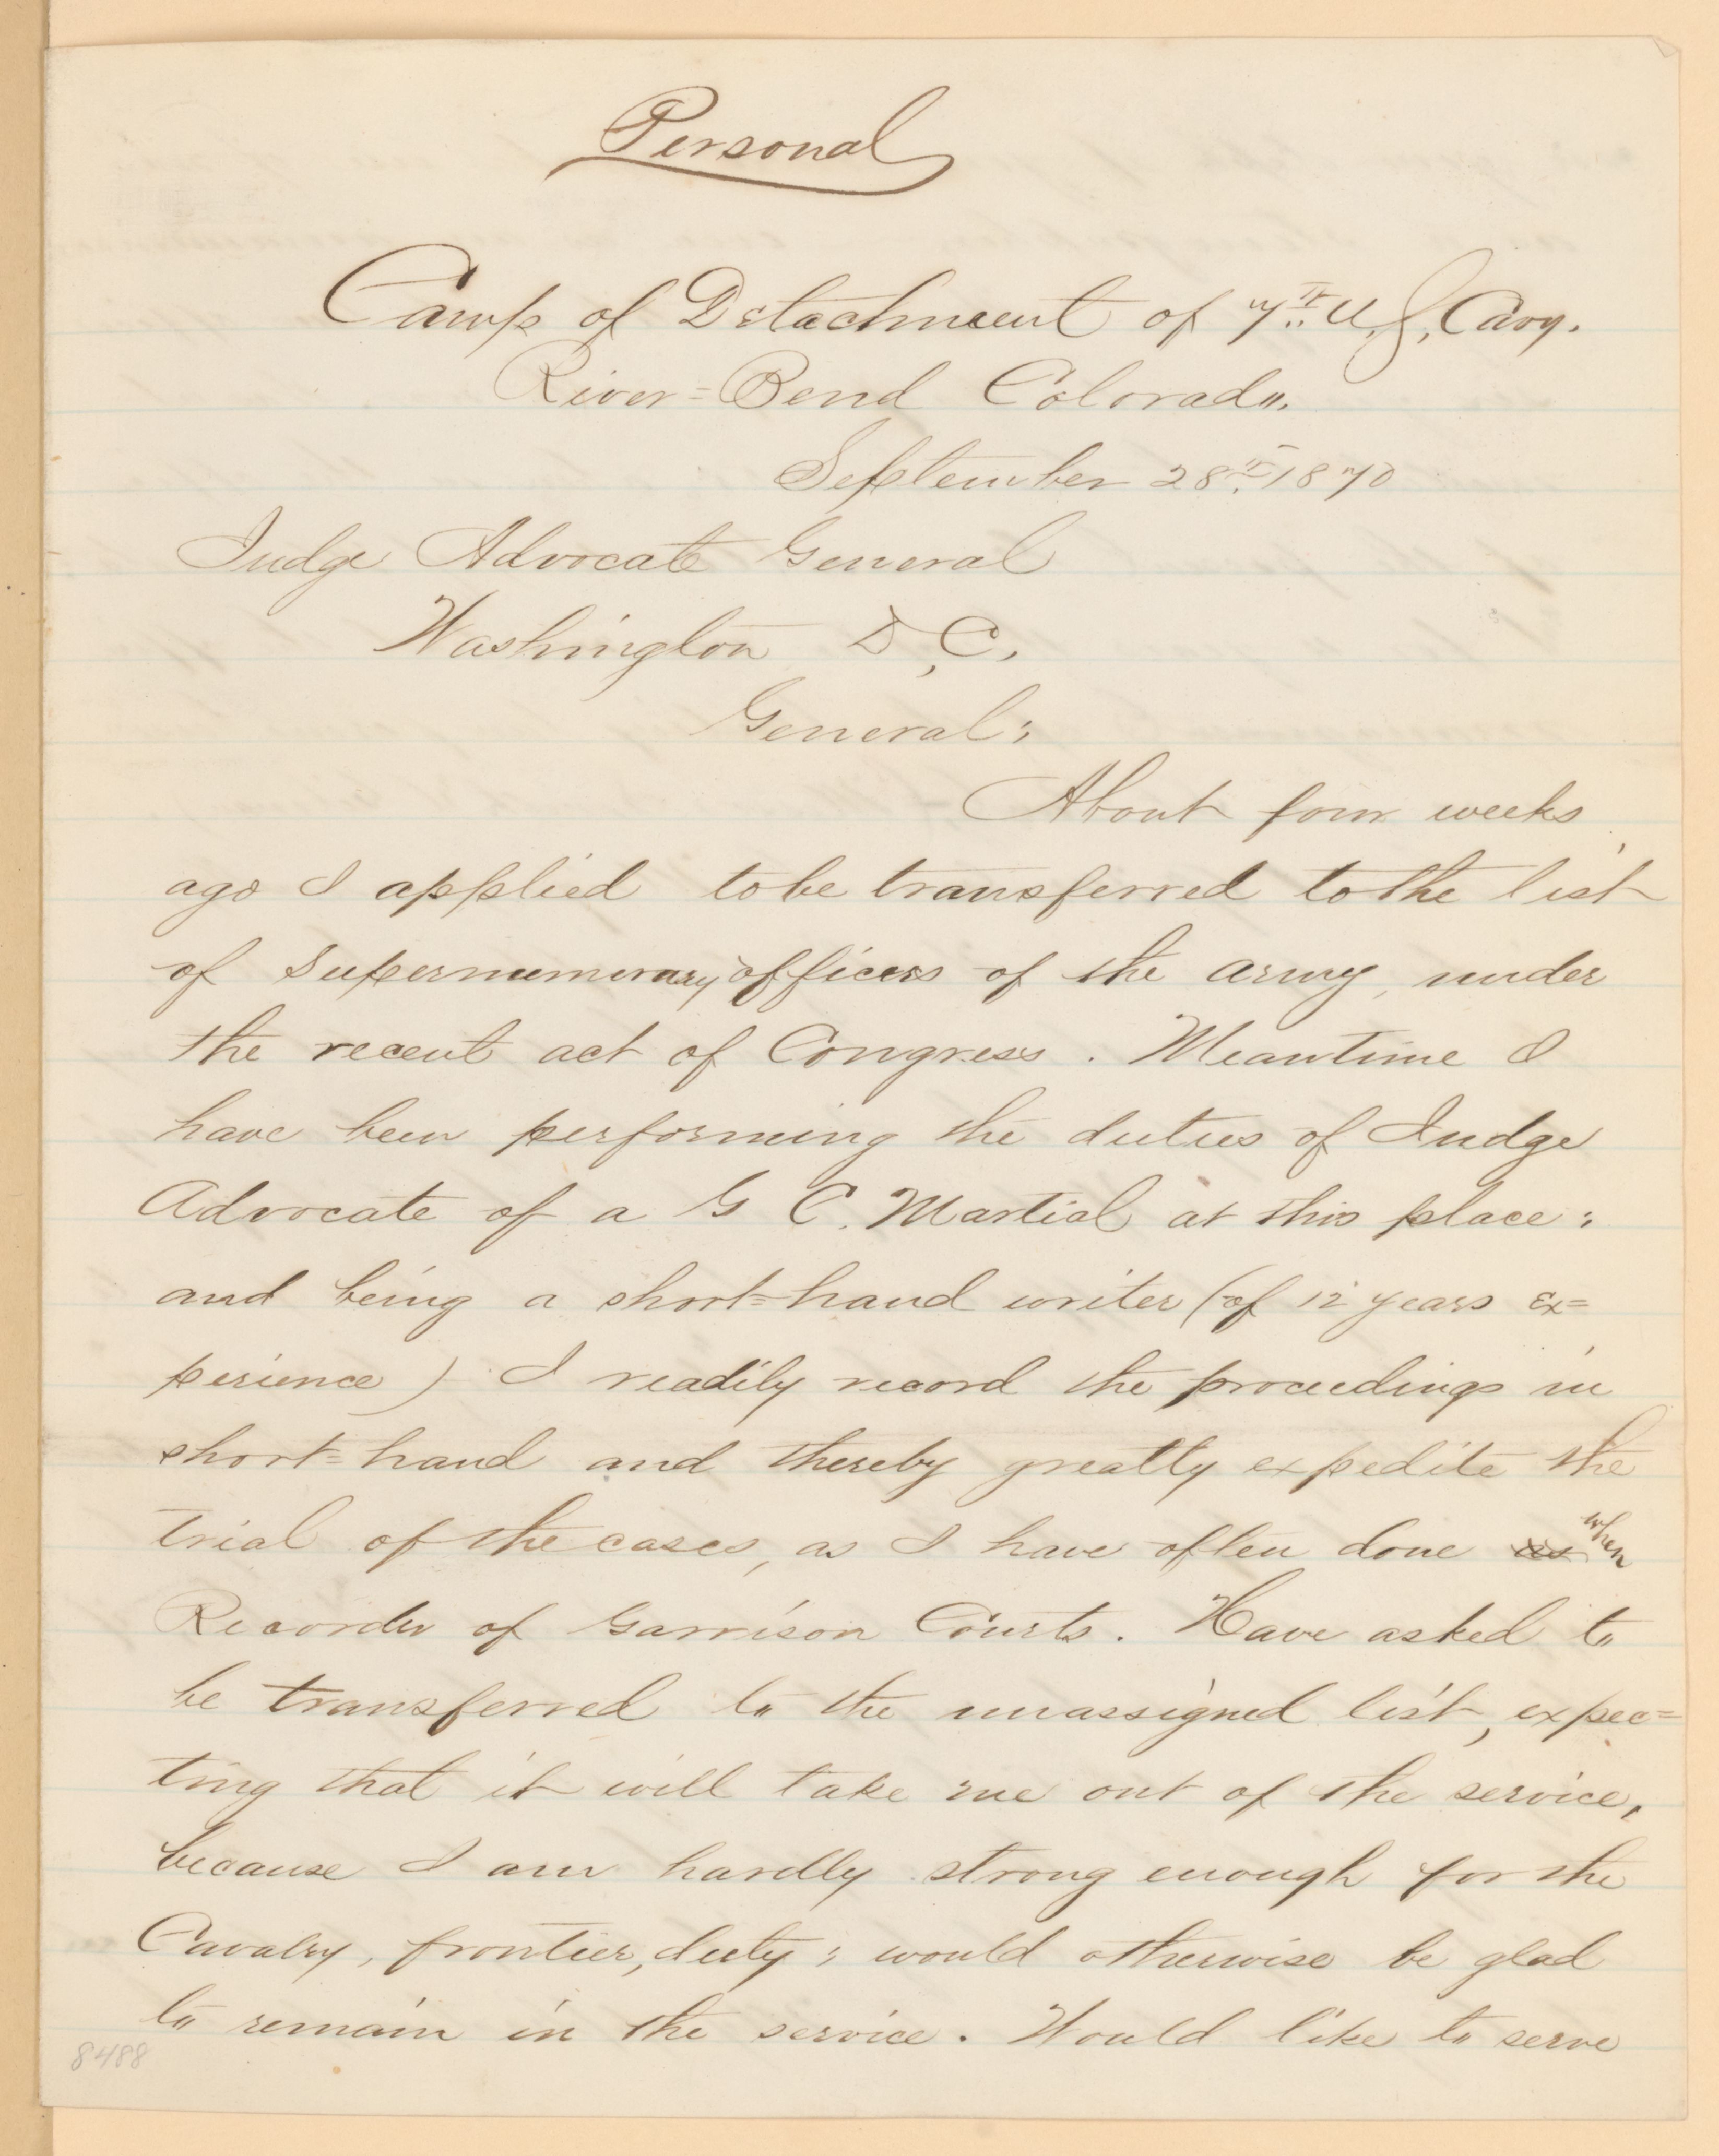 Personal
Camp of Detachment of 7th U.S. Cavy.
River=Bend Colorado.
September 28th 1870
Judge Advocate General
Washington D.C.
General:
About four weeks
ago I applied to be transferred to the list
of Supernumerary officers of the army, under
the recent act of Congress. Meantime I
have been performing the duties of Judge
Advocate of a G C. Martial at this place:
and being a short=hand writer (of 12 years ex=
perience) I readily record the proceedings in
short=hand and thereby greatly expedite the
trial of the cases, as I have often done as when
Recorder of Garrison Courts. Have asked to
be transferred to the unassigned list, expec=
ting that it will take me out of the service,
because I am hardly strong enough for the
Cavalry, frontier, duty; would otherwise be glad
to remain in the service. Would like to serve
8488